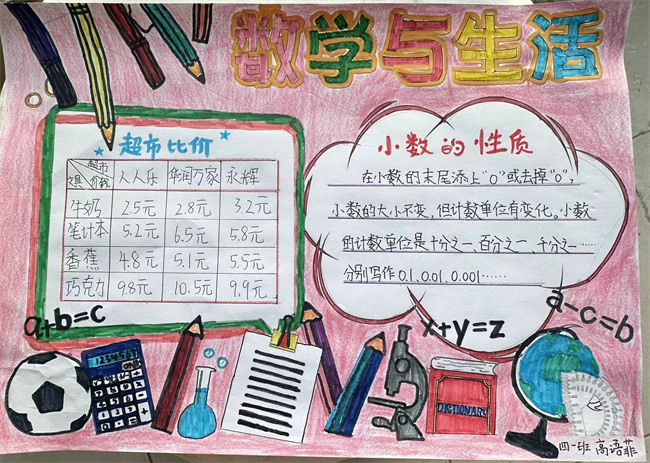 数学与生活
超市比价
超市
价钱
人人乐 华润万家 永辉
牛奶 2.5元 2.8元 3.2元
笔计本 5.2元 6.5元 5.8元
香蕉 4.8元 5.1元 5.5元
巧克力 9.8元 10.5元 9.9元
小数的性质
在小数的末尾添上"0"或去掉"0",
小数的大小不变,但计数单位有变化。小数
的计数单位是十分之一、百分之一、千分之一……
分别写作0.1、0.01、0.001……
a+b=c
x+y=z
a-c=b
DICTIONARY
四一班 高语菲